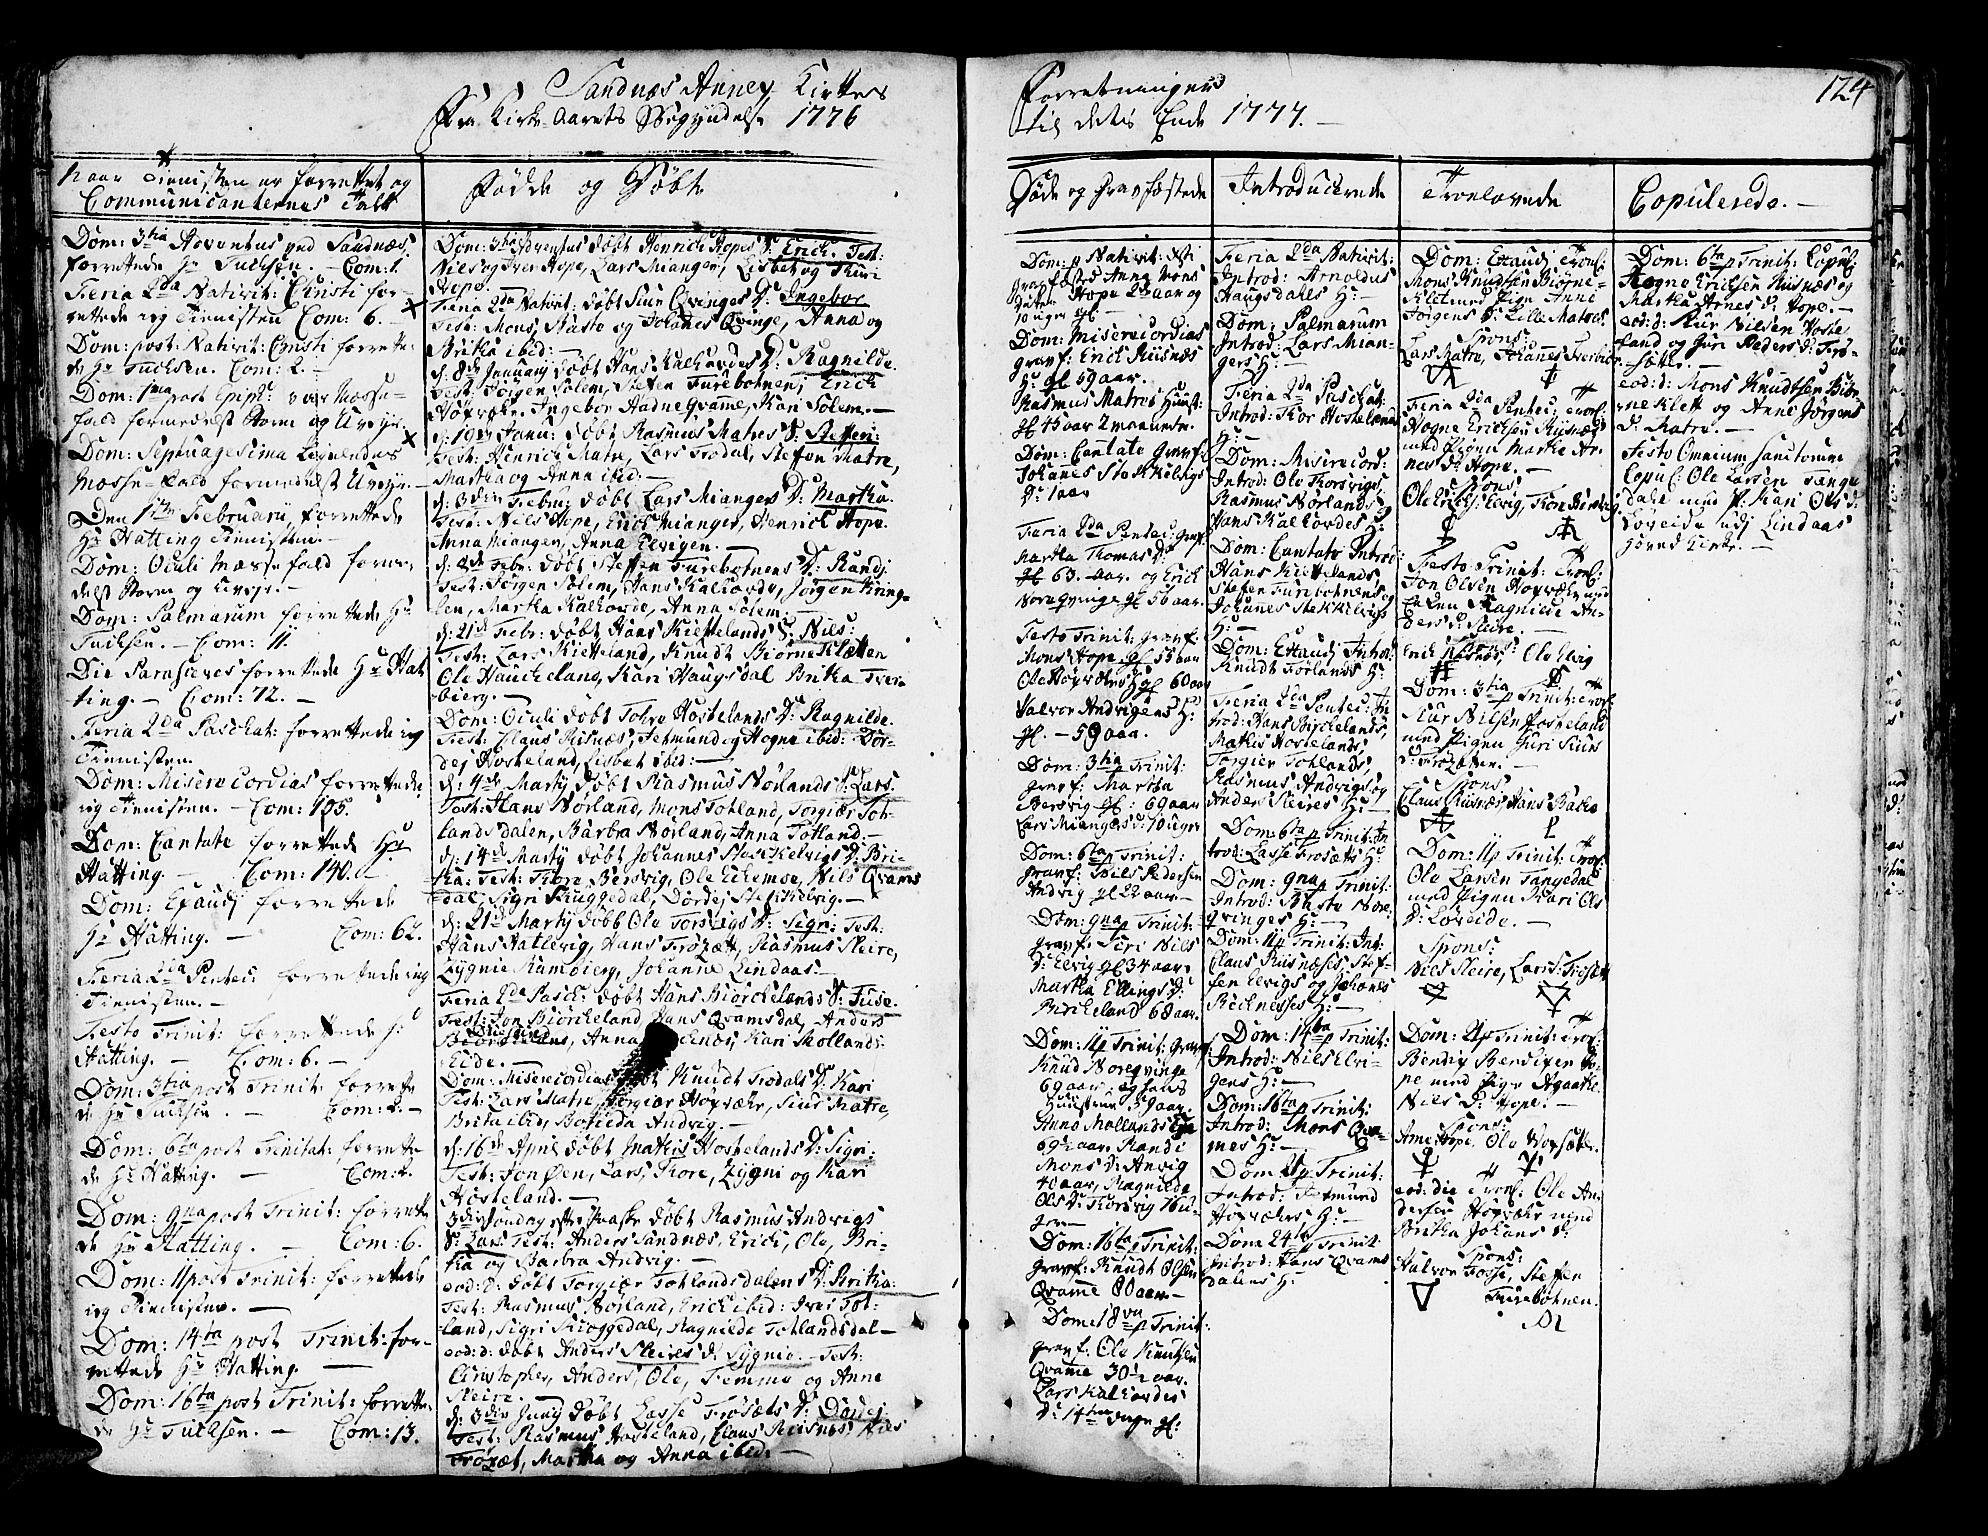 Sandnæs Annex Kirkes
Fra Kirke-Aarets Begyndelse 1776
Naar Tienisten er forrettet og
Communicanternes Tall
Dom: 3tia Adventus ved Sandnæs
forrettede Hr Tuchsen. – Com: 1.
Feria 2da Nativit: Christi for-
rettede ieg Tienisten Com: 6. –
Dom: post: Nativit: Christi forrette-
de Hr Tuchsen. Com: 2. –
Dom: 1ma post Epiph: var Messe-
fald formedelst Storm og Uveyr.
Dom: Septuagesima
Messe-Fald formedelst Uveyr. –
Den Februarii, forrettede
Hr Hatting Tienisten. –
Dom: Oculi Messefald forme-
delst Storm og Uveyr. –
Dom: Palmarum forrettede Hr
Tuchsen. – Com: 11.
Die Parasceves forrettede Hr Hat
ting. – Com: 72. –
Feria 2da Paschat: forrettede ieg
Tienisten.
Dom: Misericordias forrettede
ieg Tienisten. – Com: 105.
Dom: Cantate forrettede Hr
Hatting. – Com: 140. –
Dom: Exaudj forrettede
Hr Hatting. – Com: 62.
Feria 2da Pentec: forrettede ieg
Tienisten. –
Festo Trinit: forrettede Hr
Hatting. – Com: 6. –
Dom: 3tia post Trinit: forrette
de Hr Tuchsen. – Com: 2. –
Dom: 6ta post Trinitat: forrette
de Hr Hatting. – Com:
Dom: 9na post Trinit: forrette
de Hr Hatting. – Com: 6.
Dom: 11 post Trinit: forrettede
ieg Tienisten. –
Dom: 14ta post Trinit: for-
rettede Hr Hatting. –
Dom: 16ta post Trinit: forrette-
de Hr Tuchsen. – Com: 13.
Fødde og Døbte
Dom: 3tia Adventus døbt Henrich Hopes S: Erich. Test:
Niels og Iver Hope, Lars Mianger, Lisbet og Guri
Hope.
Feria 2da Nativit: døbt Siur Qvinges D: Ingebor
Test: Mons, Aaste og Johannes Qvinge, Anna og
Britha ibid: –
d: 8de January døbt Hans Kalhovdes D: Ragnilde.
Test: Jørgen Solem, Steffen Furebotnen, Erich
Høpræke, Ingebor Aadne Qvamme, Kari Solem. –
d: 19de Janu: døbt Rasmus Matres S: Steffen:
Test: Henrich Matre, Lars Frodal, Steffen Matre,
Martha og Anna ibid: –
d: 3die Febru: døbt Lars Miangers D: Martha.
Test: Niels Hope, Erich Mianger, Henrich Hope.
Anna Mianger, Anna Elvigen. –
d: 8de Febr: døbt Steffen Furebotnens D: Randj
Test: Jørgen Solem, Hans Kalhovde, Jørgen Kring-
len, Martha Kalhovde, Anna Solem.
d: 21de Febr: døbt Hans Kiettelands S: Niels:
Test: Lars Kietteland, Knudt Biørnekletten
Ole Haucheland, Kari Haugsdal Britha
bierg. –
Dom: Oculi døbt Tolve Hostelands D: Ragnilde.
Test: Claus Risnæs, Jetmund og Hogne ibid: Dor-
dej Hosteland, Lisbet ibid: –
d: 4de Marty døbt Rasmus Nørlands S: Lars.
Test: Hans Nørland, Mons Totland, Torgier Tot-
landsdalen, Barbra Nørland, Anna Totland. –
d: 14de Marty døbt Johannes Steckelvigs D: Bri-
tha: Test: Thore Bersvig, Ole Echemoe, Niels Qvams
dal, Sigri Skuggedal, Dordej Steckelvig. –
d: 21de Marty døbt Ole Torsvigs D: Sigri: Test:
Hans Hatlevig, Hans Frøzætt, Rasmus Sleire,
Zygnie Kamsbierg, Johanne Lindaas. –
Feria 2da Pasch: døbt Hans Biørchelands S:
Test: Jon Biørcheland, Hans Qvamsdal, Anders
Anna Kari Mollands
Eide. –
Dom: Misericordias døbt Knudt Frodals D: Kari
Test: Lars Matre, Torgier Høpræke, Siur Matre,
Brita ibid, Botilda Andvig. –
d: 16de April døbt Mathis Hostelands D: Sigri:
Test: Jon Øen, Lars, Tore, Zygni og Kari
Hosteland. –
3die Søndag efter Paaske døbt Rasmus Andvigs
S: Lars Test: Anders Sandnæs, Erich, Ole, Bri-
tha og Barbra Andvig. –
eod: D: døbt Torgier Totlandsdalens D: Britha:
Test: Rasmus Nørland, Erich ibid: Iver Tot-
land, Sigri Skoggedal, Ragnilde Totlandsdal –
eod: d: døbt Anders Sleires D: Zygnie. – Test:
Christopher, Anders, Ole, Temme og Anne
Sleire. –
d: 3die Juny døbt Lasse Frøsæts D: Dordej
Test: Rasmus Hosteland, Claus Risnæs, Niels
Frøzet, Martha og Anna ibid: –
Forretninger
til dets Ende 1777. –
124
Døde og Gravfæstede
Dom: p Nativit: Xsti
gravfæsted Anna Mons
Datter Hope 2 aar og
10 uger gl –
Dom: Misericordias
gravf: Erich Risnæs
H: gl 69 aar.
Rasmus Matres Hustr:
gl 45 aar 2 maaneder.
Dom: Cantate Gravf:
Johannes Steckelvigs
D: 1 aar
Feria 2da Pentec: gravf:
Martha Thomas D:
gl 63. aar. og Erich
Noreqvinge gl 56 aar.
Festo Trinit: gravf:
Mons Hope gl 55 aar
Ole Høpræk gl 60 aar
Halvor Andvigens H:
gl. – 59 aar.
Dom: 3tia Trinit:
gravf: Martha
Bersvig gl: 69 aar
Lars Miangers D: 10 uger
Dom: 6ta p Trinit:
gravf: Niels Pedersen
Andvig gl 22 aar. –
Dom: 9na p Trinit:
gravf: Siri Niels
D: Elvig gl 34 aar.
Martha Ellings D:
Birckeland 68 aar.
Dom: 11 p Trinit: Gravf:
Knud Noreqvinge
69 aar. og hans
Hustrue 59 aar.
Anna Mollands Eide
69½ aar. Randi
Mons D: Anvig
40 aar, Ragnilde
Ols D: Torsvig 16 u-
ger –
Dom: 16ta p Trinit:
gravf: Knudt Olsen
Qvame 80 aar –
Dom: 18va p Trinit:
gravf: Ole Knutsen
Qvame 30½ aar.
Lars Kalhovdes
D: 14ten dage gl:
Introducerede
Feria 2da Nativit:
Introd: Arnoldus
Haugsdales H: –
Dom: Palmarum
Introd: Lars Mian-
gers H: –
Feria 2da Paschat:
Introd: Tor Hostelands
H: –
Dom: Misericord:
Introd: Ole Thorsvigs,
Rasmus Nørlands og
Hans Kalhovdes H:
Dom: Cantate Introd:
Hans Kiettelands,
Stefen Furebotnens og
Johanes Stekkelvigs
H: –
Dom: Exaudj Introd:
Knudt Førlands H:
Feria 2da Pentec: In-
trod: Hans Birchelands,
Mathis Hostelands,
Torgier Totlands,
Rasmus Andvigs og
Anders Sleires H: –
Dom: 6ta p Trinit: In-
trod: Lasse Frøsætts H:
Dom: 9na p Trinit:
Introd: Baste Nore
qvinges H: –
Dom: 11 p Trinit: Int:
Claus Risnæses, Stef-
fen Elvigs og Johanes
Reknesses H: –
Dom: 14ta p Trinit:
Introd: Niels Elvi-
gens H: –
Dom: 16ta p Trinit:
Introd: Mons Qva-
mes H: –
Dom 21 p Trinit:
Introd: Jetmund
Høprækes H: –
Dom 24 p Trinit:
Introd: Hans Qvams
dalens H: –
Troelovede
Dom: Exaudj Troel:
Mons Knudtsen Biørne-
klet med Pigen Anne
Jørgens D: Lille Matre
Spons:
Lars Matre, Johanes
Feria 2da Pentec: Troel:
Hogne Erichsen Risnæs
med Pigen Martha Ar-
nes D: Hope. –
Spons:
Ole Elvig,
Festo Trinit: Troel:
Jon Olsen Høpræke med
Ragnilde An-
ders D: Sleire. –
Spons:
Erich Risnæs, Ole Elvig
Dom: 3tia p Trinit: Troel:
Siur Nilsen Hosteland
med Pigen Guri Siurs
D: Frøzetten.
Spons:
Claus Risnæs, Hans
Dom: 11 p Trinit: Troel:
Ole Larsen Tangedal
med Pigen Kari Ols
D: Løreide. –
Spons:
Niels Sleire, Lars
Dom: 21 p Trinit: Troel:
Bendix Bendixen Ho-
pe med Pige Agaathe
Niels D: Hope. –
Spons:
Arne Hope, Ole
eod: die Troel: Ole An-
dersen Høpræke med
Britha Johans D:
Spons:
Halvor Fosse, Steffen
Furebotnen.
Copulerede. –
Dom: 6ta p Trinit: Copul:
Hogne Erichsen Risnæs og
Martha Arnes D: Hope. –
eod: d: Siur Nilsen Hoste
land og Guri Siurs D: Frø-
sætt. –
eod: d: Mons Knudtsen Biør-
neklett og Anne Jørgens
D: Matre. –
Festo Omnium Sanctorum
Copul: Ole Larsen Tange
dal med P: Kari Ols D:
Løreide udj Lindaas
Hoved Kirke. –